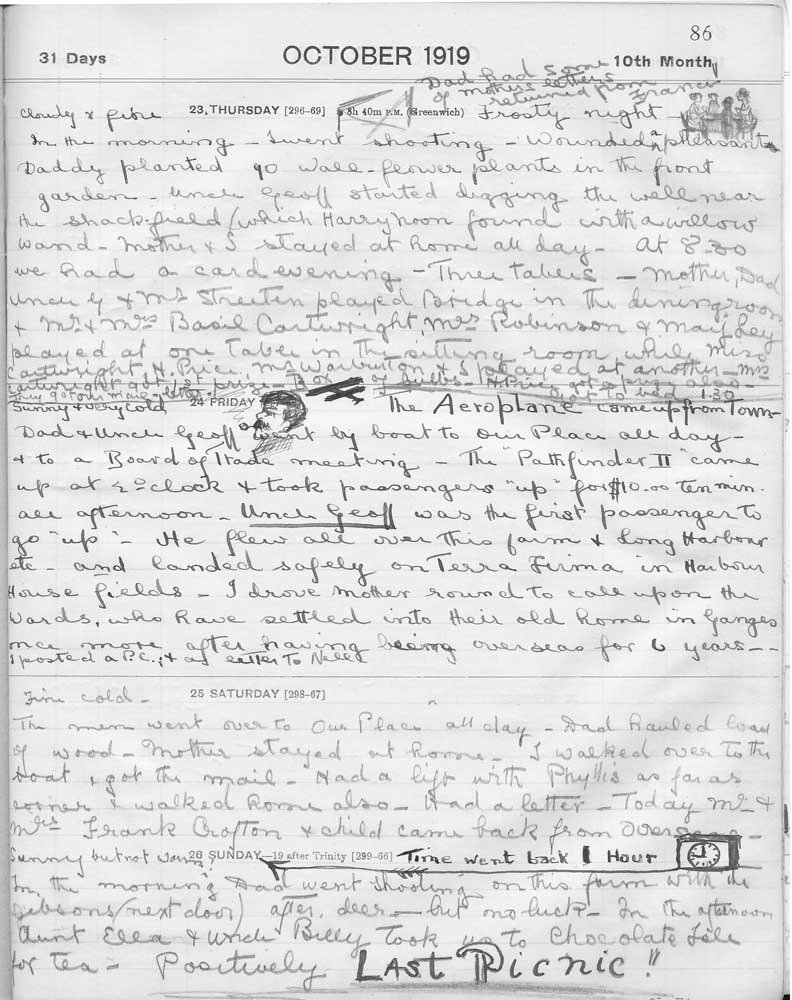 86
31 Days OCTOBER 1919 10th Month
Dad had some
of mothers letters
returned from France
Cloudy & fine 23, THURSDAY [296–69] 8h 40m P.M. (Greenwich) Frosty night
In the morning – I went shooting – Wounded a pheasant
Daddy planted 90 wall-flower plants in the front
garden – Uncle Geoff started digging the well near
the shack-field (which Harry Noon found with a willow
wand – Mother & I stayed at home all day – At 8.30
we had a card evening – Three tables – Mother, Dad
Uncle G & Mrs Streeten played Bridge in the dining room
& Mr & Mrs Basil Cartwright, Mrs Robinson &
played at one table in the sitting room, while Miss
Cartwright, H. Price, Mr Warburton & I played at another – Mrs
Cartwright got 1st prize – Box of bulbs – H Price got a prize also –
got our mail – letter got to bed 1.30
Sunny & very cold 24 FRIDAY The Aeroplane came up from Town –
Dad & Uncle Geoff went by boat to Our Place all day –
& to a Board of Trade meeting – The "Pathfinder II" came
up at 2 o'clock & took passengers "up" for $10.00 ten min.
all afternoon – Uncle Geoff was the first passenger to
go "up" – He flew all over this farm & Long Harbour
etc – and landed safely on Terra Firma in Harbour
House fields – I drove Mother round to call upon the
Wards, who have settled into their old home in Ganges
once more after having being overseas for 6 years – –
I posted a P.C., & a letter to Nell
Fine cold – 25 SATURDAY [298–67]
The men went over to Our Place all day – Dad hauled load
of wood – Mother stayed at home – I walked over to the
boat, & got the mail – Had a lift with Phyllis as far as
corner & walked home also – Had a letter – Today Mr &
Mrs Frank Crofton & child came back from Overseas –
Sunny but not warm! 26 SUNDAY—19 after Trinity [299–66] Time went back 1 Hour
In the morning Dad went shooting on this farm with the
Gibsons (next door) after deer – but no luck – In the afternoon
Aunt Ella & Uncle Billy took us to Chocolate Isle
for tea – Positively LAST Picnic!!